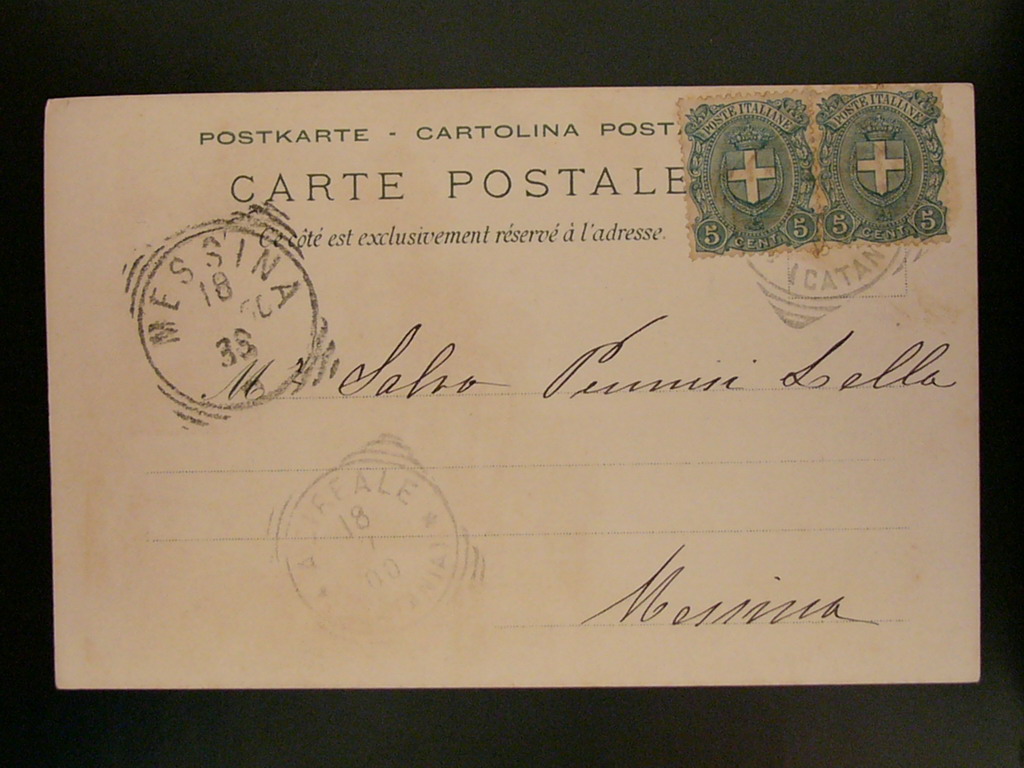 POSTKARTE - CARTOLINA POSTA
CARTE POSTALE
Ce côté est exclusivement réservé à l'adresse.
POSTE ITALIANE
5 CENT. 5
POSTE ITALIANE
5 CENT. 5
(CATAN
MESSINA
18
Salvo Pennisi Lella
18
1
00
Messina